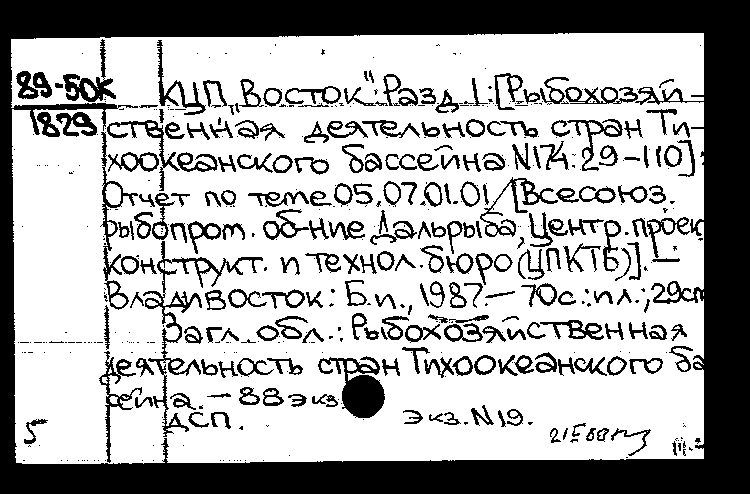 89-50К КЦП „Восток“: Разд 1: [Рыбохозяй-
1829 ственная деятельность стран Ти-
хоокеанского бассейна N174: 29-110]:
Отчет по теме 05.07.01.01 / [Всесоюз.
рыбопром. об-ние Дальрыба, Центр. проек
конструкт. и технол. бюро (ЦПКТБ)]. —
Владивосток: Б.и., 1987. — 70с.: ил.; 29см
Загл. обл.: Рыбохозяйственная
деятельность стран Тихоокеанского ба
сейна. — 88 экз.
ДСП. экз. N19.
5